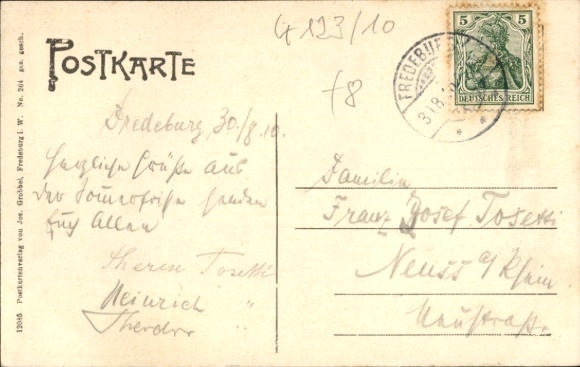 4123/10
POSTKARTE
f8
5 5
DEUTSCHES REICH
FREDEBURG
31.8.
Fredeburg, 30/8.10.
Herzliche Grüße aus
der Sommerfrische senden
Euch Allen
Theren Tosetti
Heinrich "
Theodor "
Familie
Franz Josef Tosetti
Neuss a/Rhein
Neustraße.
12085 Postkartenverlag von Jos. Grobbel, Fredeburg i. W. No. 264 ges. gesch.